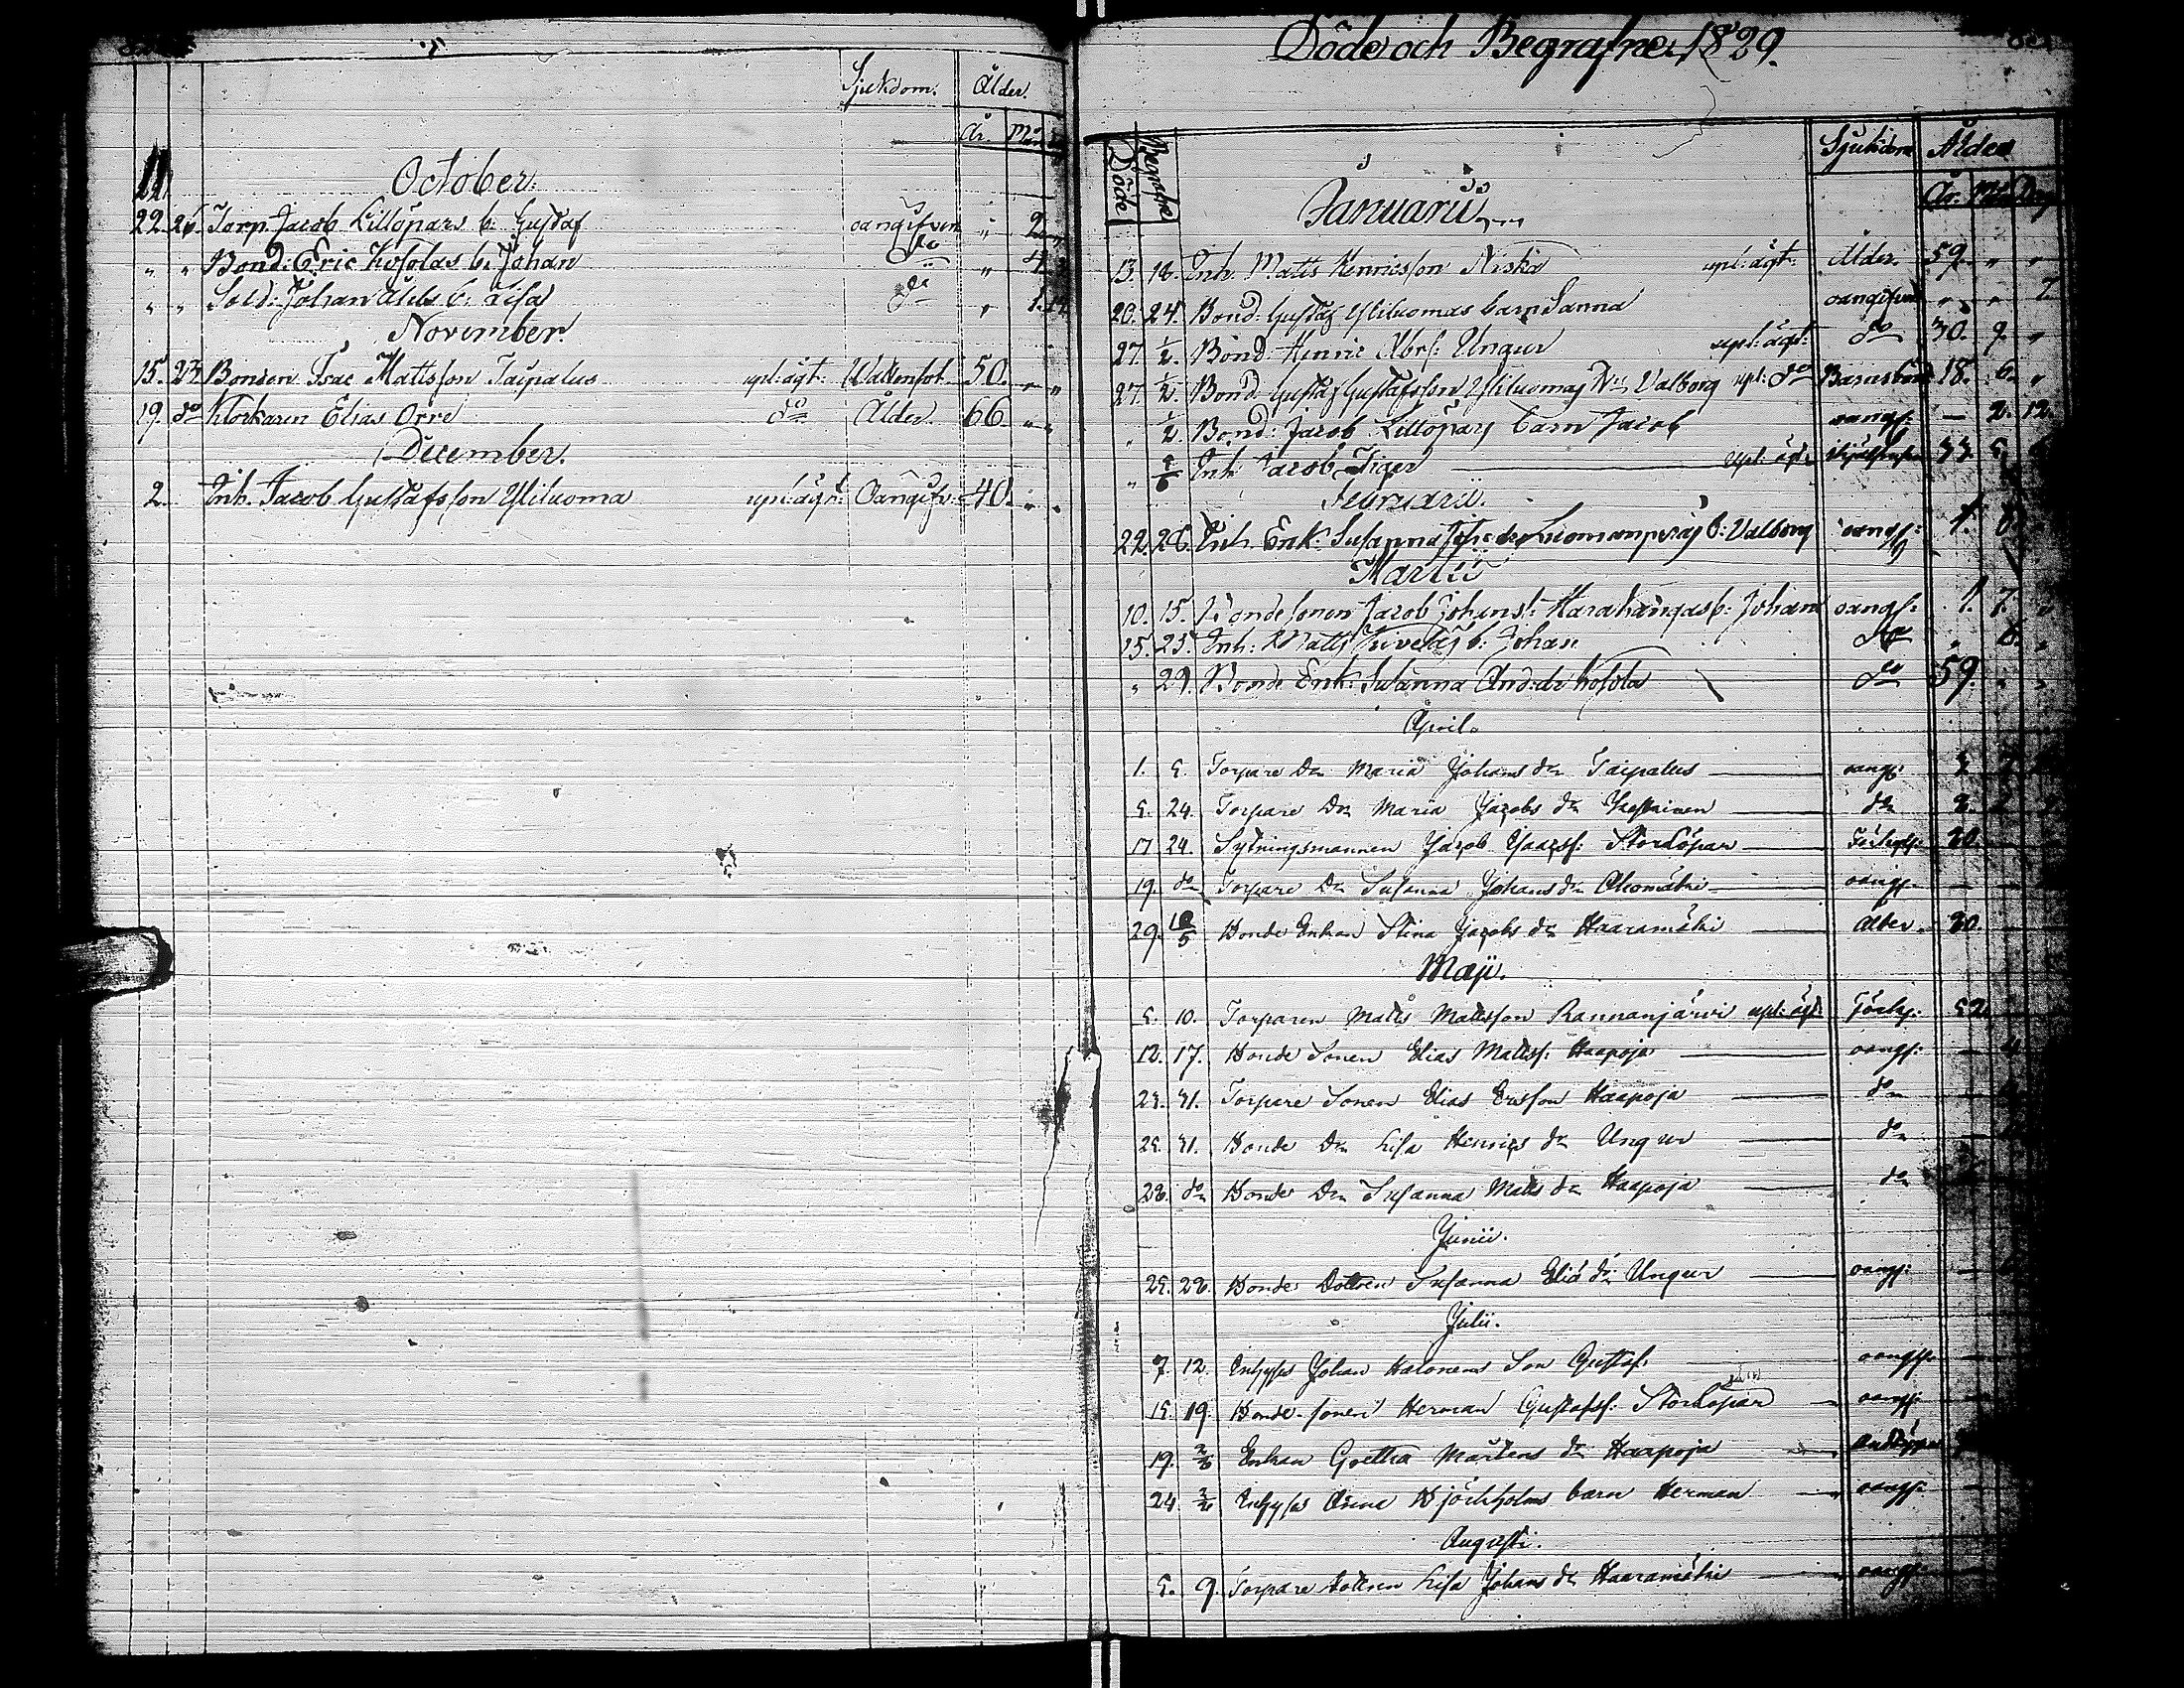 Sjukdom. Ålder.
År. Mån
October.
22. 26. Torp. Jacob Lillöpars b: Gustaf oangifven „ 2 „
„ „ Bond: Eric Kosolas b: Johan do „ 4
„ „ Sold: Johan Alils b: Lisa do „ 1. 14
November.
15. 23. Bonden Isac Mattsson Taipalus upl: ägt: Wattensot 50. „ „
19. do Klockaren Elias Orre do Ålder. 66 „ „
December.
2. Inh. Jacob Gustafsson Yliluoma upl: ägt: Oangifv: 40. „ „
Döde och Begrafne. 1829.
Döde Begrafne Sjukdom Ålder
År. Mån Dag
Januarii
13. 18. Inh. Matts Henricsson Niska upl: ägt: Ålder. 59. „ „
20. 24. Bond: Gustaf Yliluomas barn Sanna oangifven „ „ 7.
27. 1/2. Bond: Henric Abrs: Ungur upl: ägt: do 30. 9. „
27. 1/2. Bond. Gustaf Gustafsson Yliluomas Dr Valborg upl: do Barnsbörd 18. 6. „
„ 1/2. Bond: Jacob Lillöpars barn Jacob oangf: — 2. 12.
„ Inh: Jacob Tiger upl: ägt: 33. 5.
Februarii.
22. 28. Inh. Enk: Susanna Johs dr Luomanperäs b: Valborg oangf:
Martii
10. 15. Bondesonen Jacob Johanss: Harahangas b: Johan oangf: 1. 7. „
15. 25. Inh: Matts Kivelas b: Johan do „ 6. „
„ 29. Bonde Enk: Susanna And: dr Kosola do 59. „ „
April.
1. 5. Torpare Dr Maria Johans dr Taipalus oangf:
5. 24. Torpare Dr Maria Jacobs dr do 2.
17 24. Sytningsmannen Jacob Isacss: Storlöpar
19. do Torpare Dr Susanna Johans dr Ahomäki oangf:
29. 10/5 Bonde Enkan Stina Jacobs dr Haaramäki Ålder. 80.
Maji.
5. 10. Torparen Matts Mattsson Rannanjärvi upl: ägt: 52
12. 17. Bonde Sonen Elias Mattss: Haapoja oangf: — 4
23. 31. Torpare Sonen Elias Ersson Haapoja do
25. 31. Bonde Dr Lisa Henrics dr Ungur do
28. do Bonde Dr Susanna Matts dr Haapoja do
Junii.
25. 28. Bonde Dottren Susanna Elià dr Ungur oangf:
Julii.
7. 12. Inhyses Johan Halonens Son Gustaf. oangf:
15. 19. Bonde-sonen Herman Gustafss: Storlöpar oangf:
19. 2/8 Enkan Gretha Mårtens dr Haapoja
24 2/8 Inhyses Anna Björkholms barn Herman oangf:
Augusti.
5. 9. Torpare dottren Lisa Johans dr Haaramäki oangf: